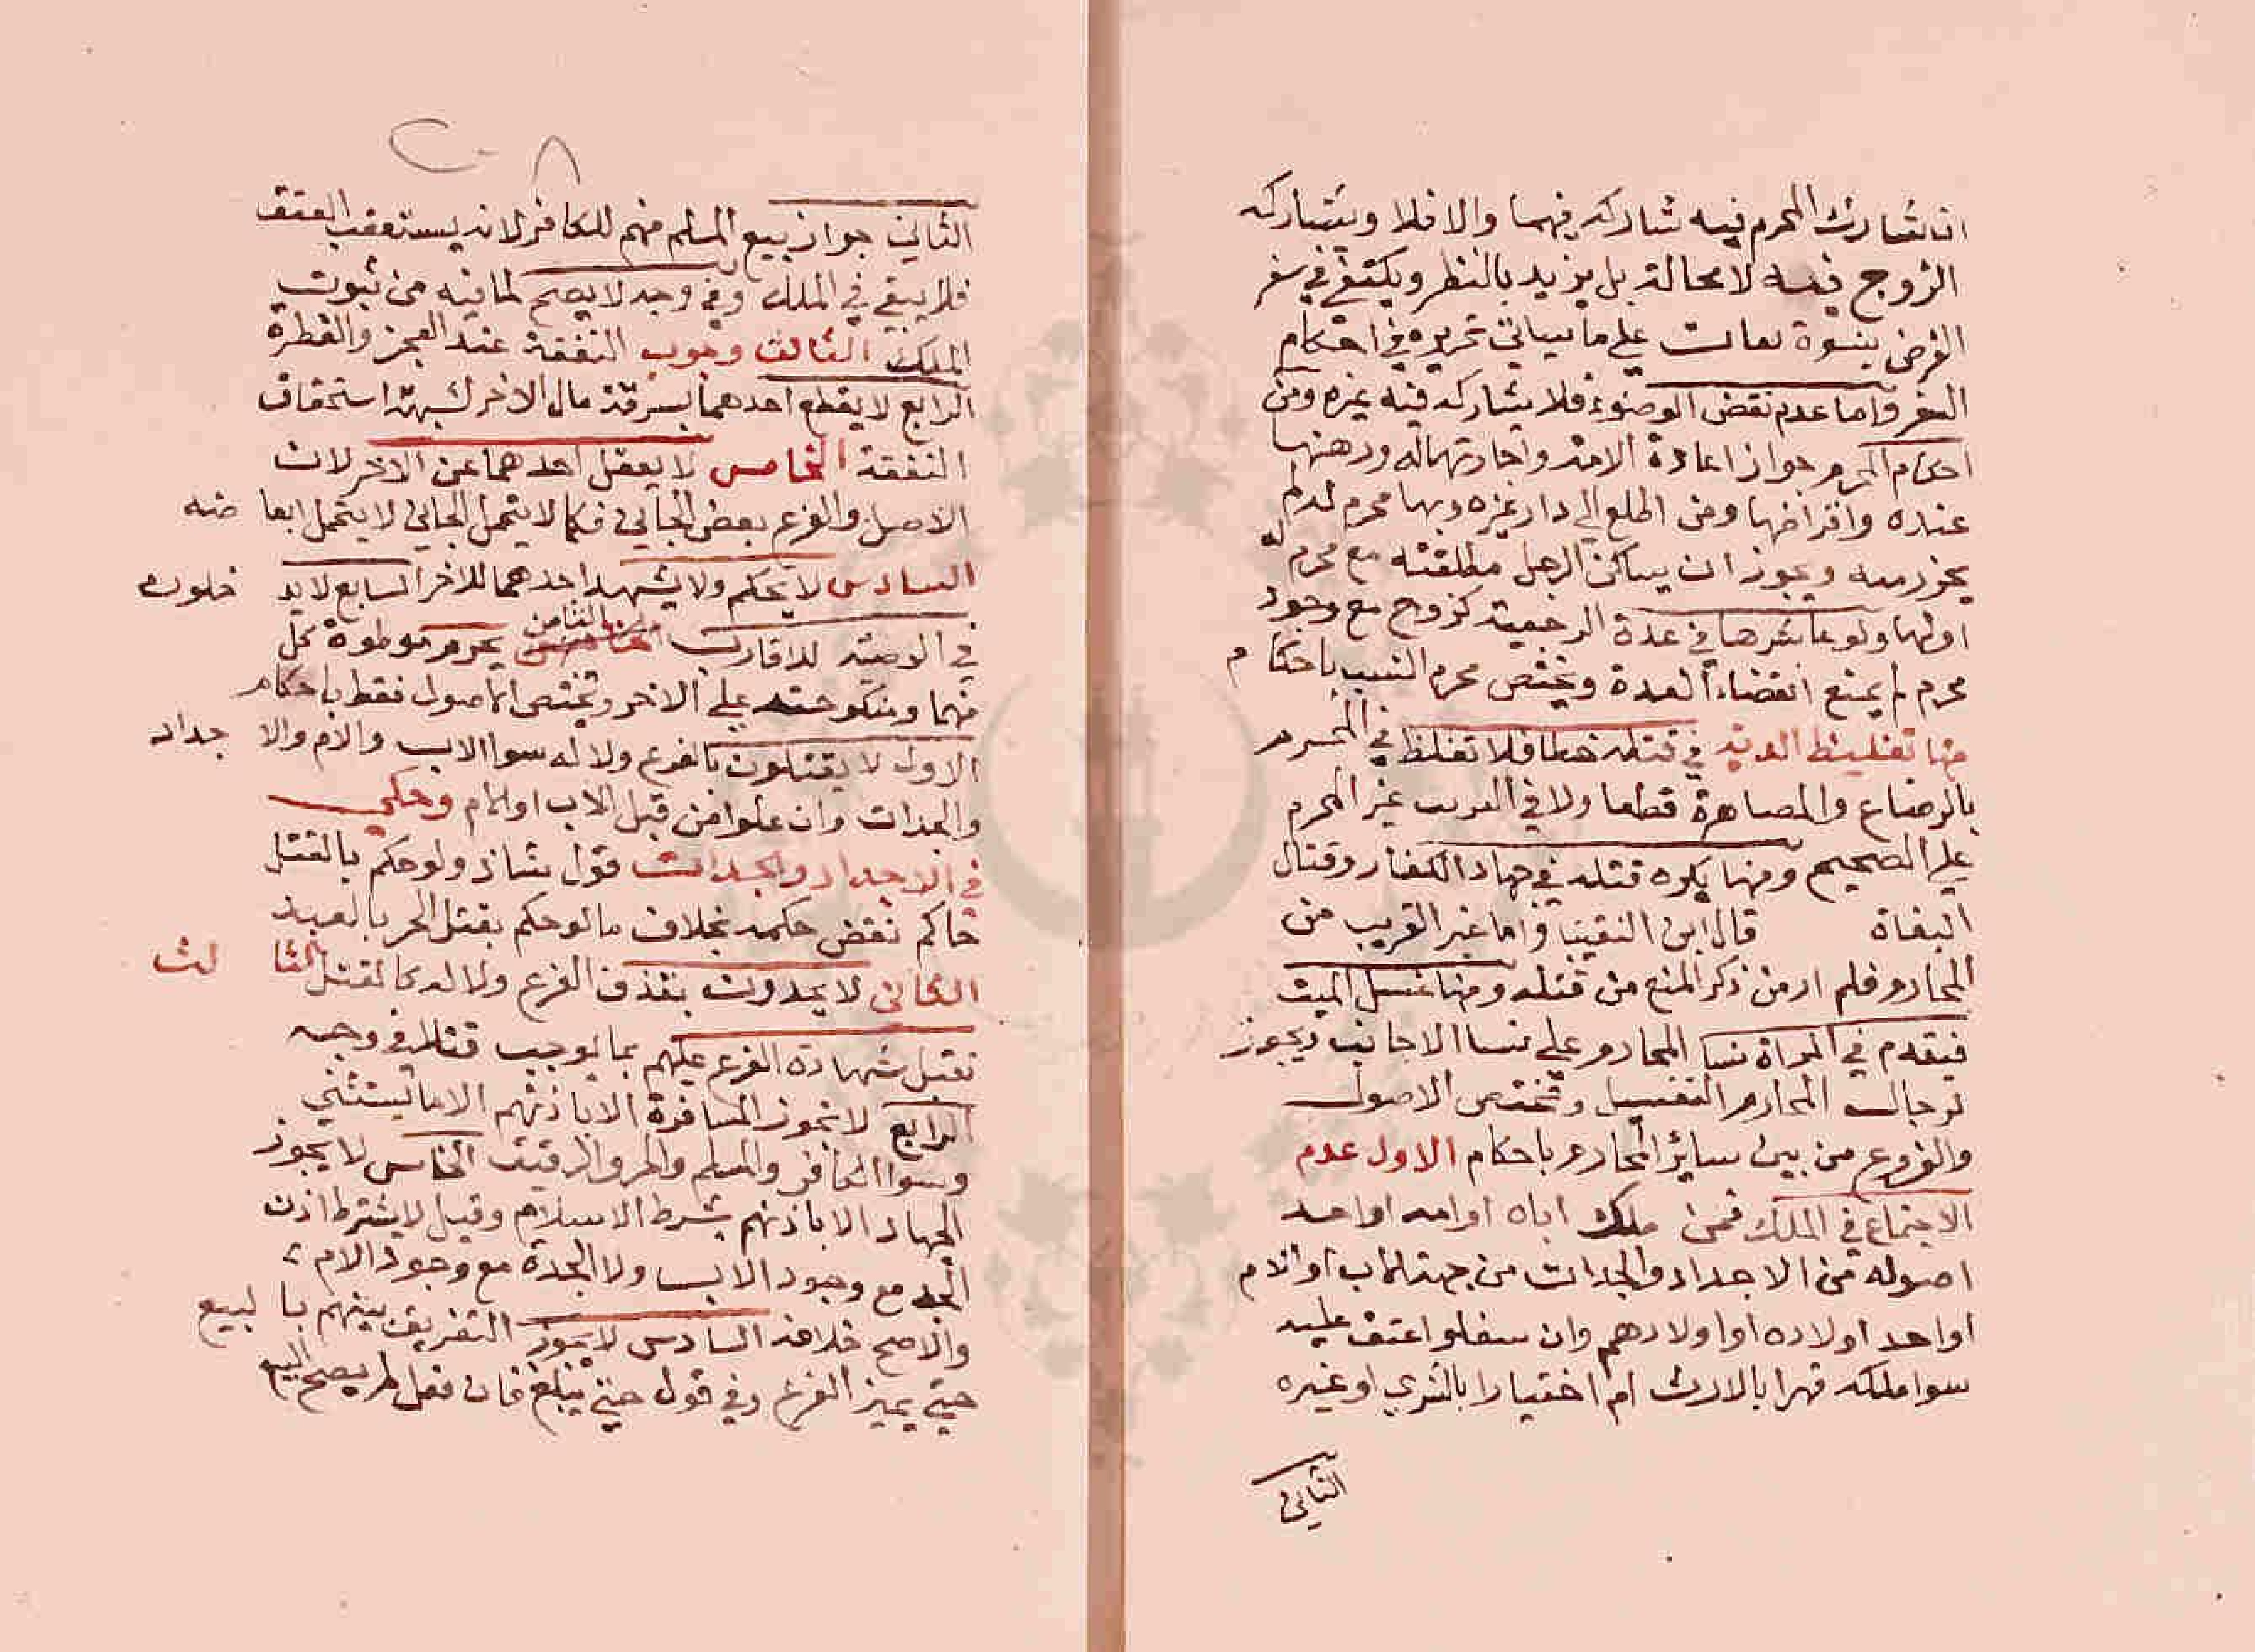 ان تشارك المحرم فيه شاركه فيهما والا فلا ويشاركه
الزوج فيه لا محالة بل يزيد بالنظر ويكتفي في سفر
الفرض بنسوة ثقات علي ما سياتي تحريره في احكام
السفر واما عدم نقض الوضوء فلا يشاركه فيه غيره ومن
احكام المحرم جواز اعادة الامة واجارتهاله ورهنها
عنده واقراضها ومن اطلع الي دار غيره وبها محرم له لم
يجز رميه ويجوز ان يساكن الرجل مطلقته مع محرم له
اولها ولو عاشرها في عدة الرجعية كزوج مع وجود
محرم لم يمنع انقضاء العدة ويختص محرم النسب باحكام
منها تغليظ الدية في قتله خطا فلا تغلظ في المحرم
بالرضاع والمصاهرة قطعا ولا في القريب غير المحرم
علي الصحيح ومنها يكره قتله في جهاد الكفار وقتال
البغاة قال ابن النقيب واما غير القريب من
المحارم فلم ار من ذكر المنع من قتله ومنها غسل الميت
فيقدم في المراة نسا المحارم علي نسا الاجانب ويجوز
لرجال المحارم التغسيل وتختص الاصول
والفروع من بين سائر المحارم باحكام الاول عدم
الاجتماع في الملك فمن ملك اباه او امه او احد
اصوله من الاجداد والجدات من جهة الاب او الام
او احد اولاده او اولادهم وان سفلو اعتق عليه
سوا ملكه قهرا بالارث ام اختيارا بالشري او غيره
الثاني
الثاني جواز بيع المسلم منهم للكافر لانه يستعقب العتق
فلا يبقي في الملك وفي وجه لا يصح لما فيه من ثبوت
الملك الثالث وجوب النفقة عند العجز والفطرة
الرابع لا يقطع احدهما بسرقة مال الاخر لشبهة استحقاق
النفقة الخامس لا يعقل احدهما عن الاخر لان
الاصل والفرع بعض الجاني فكما لا يتحمل الجاني لا يتحمل ابعا ضه
السادس لا يحكم ولا يشهد احدهما للاخر السابع لا يد خلون
في الوصية للاقارب الثامن يحرم موطوة كل
منهما ومنكوحته علي الاخر وتختص الاصول فقط باحكام
الاول لا يقتلون بالفرع ولا له سوا الاب والام والا جداد
والجدات وان علوا من قبل الاب او الام وحكي
في الاجداد والجدات قول شاذ ولو حكم بالقتل
حاكم نقض حكمه بخلاف ما لو حكم بقتل الحر بالعبد
الثاني لا يحدون بقذف الفرع ولا له كالقتل الثا لث
تقبل شهادة الفرع عليهم بما يوجب قتلا في وجه
الرابع لا تجوز المسافرة الا باذنهم الا ما يستثني
وسوا الكافر والمسلم والحر والرقيق الخامس لا يجوز
الجهاد الا باذنهم بشرط الاسلام وقيل لا يشترط اذن
الجد مع وجود الاب ولا الجدة مع وجود الام
والاصح خلافه السادس لا يجوز التفريق بينهم با لبيع
حتي يميز الفرع وفي قول حتي يبلغ فان فعل لم يصح البيع